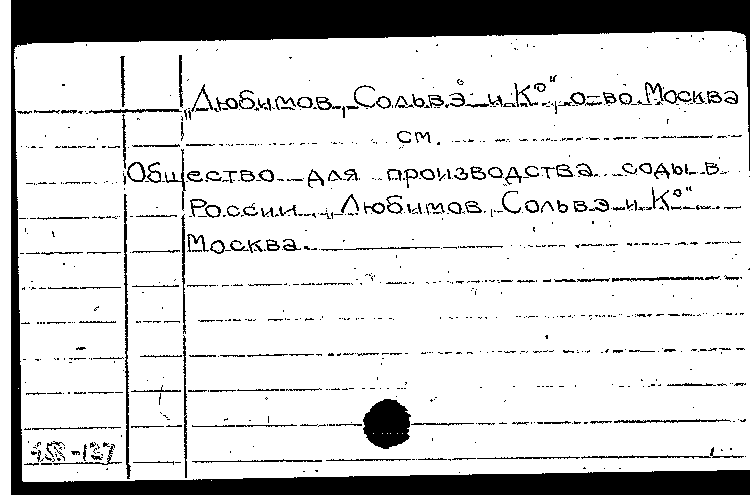 „Любимов, Сольвэ и К°“, о-во. Москва
см.
Общество для производства соды в
России „Любимов, Сольвэ и К°“.
Москва.